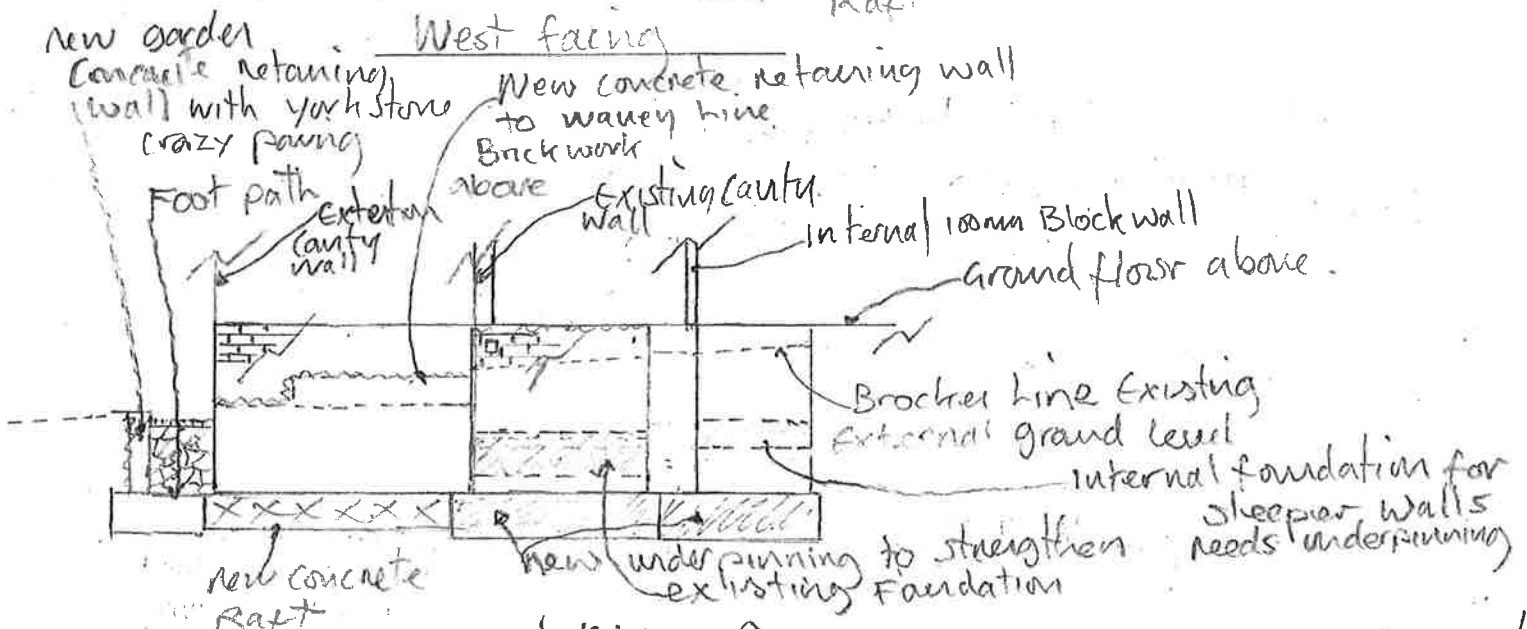 Raft
West facing
new garden
Concrete Retaining
wall with york stone
crazy paving
New concrete retaining wall
to wavey Line
Brickwork
above
Foot path
Exterior
Cavity
wall
Existing Cavity
wall
Internal 100mm Block wall
Ground floor above.
Brocken Line Existing
External ground level
Internal foundation for
sleeper walls
needs underpinning
new underpinning to strengthen
existing Foundation
new concrete
Raft